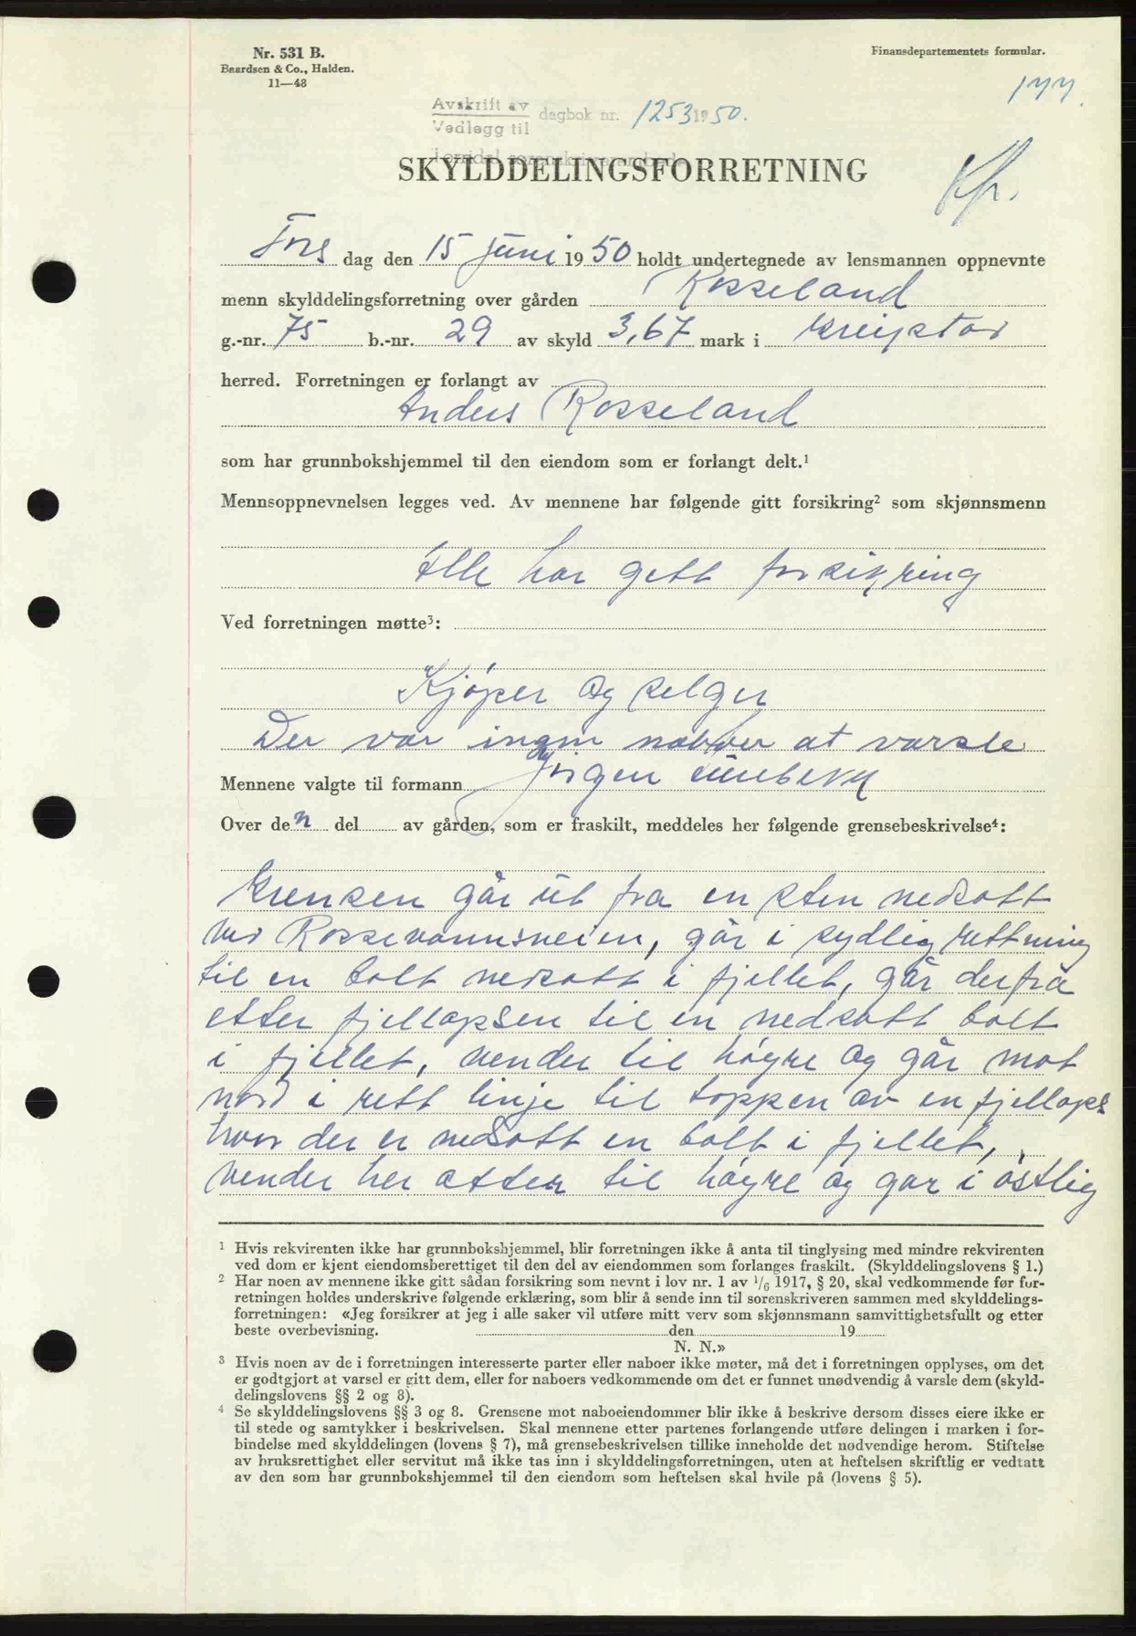 Nr. 531 B.
Baardsen & Co., Halden.
11—48
Finansdepartementets formular.
177.
Avskrift av
Vedlegg til
dagbok nr. 1253 1950.
sorenskriverembede
SKYLDDELINGSFORRETNING
Kfr.
Tors dag den 15 juni 1950 holdt undertegnede av lensmannen oppnevnte
menn skylddelingsforretning over gården Rosseland
g.-nr. 75 b.-nr. 29 av skyld 3,67 mark i
herred. Forretningen er forlangt av
Anders Rosseland
som har grunnbokshjemmel til den eiendom som er forlangt delt.¹
Mennsoppnevnelsen legges ved. Av mennene har følgende gitt forsikring² som skjønnsmenn
Alle har gett forsikring
Ved forretningen møtte³:
Kjøper og selger
Der var ingen naboer at varsle
Mennene valgte til formann Jørgen
Over den del av gården, som er fraskilt, meddeles her følgende grensebeskrivelse⁴:
Grensen går ut fra en sten nedsatt
ved Rossevannsveien, går i sydlig rettning
til en bolt nedsatt i fjellet, går derfra
etter fjellapsen til en nedsatt bolt
i fjellet, vender til høyre og går mot
nord i rett linje til toppen av en fjellaps
hvor der er nedsatt en bolt i fjellet,
vender her etter til høyre og gar i östlig
¹ Hvis rekvirenten ikke har grunnbokshjemmel, blir forretningen ikke å anta til tinglysing med mindre rekvirenten
ved dom er kjent eiendomsberettiget til den del av eiendommen som forlanges fraskilt. (Skylddelingslovens § 1.)
² Har noen av mennene ikke gitt sådan forsikring som nevnt i lov nr. 1 av 1/6 1917, § 20, skal vedkommende før for-
retningen holdes underskrive følgende erklæring, som blir å sende inn til sorenskriveren sammen med skylddelings-
forretningen: «Jeg forsikrer at jeg i alle saker vil utføre mitt verv som skjønnsmann samvittighetsfullt og etter
beste overbevisning. den 19
N. N.»
³ Hvis noen av de i forretningen interesserte parter eller naboer ikke møter, må det i forretningen opplyses, om det
er godtgjort at varsel er gitt dem, eller for naboers vedkommende om det er funnet unødvendig å varsle dem (skyld-
delingslovens §§ 2 og 8).
⁴ Se skylddelingslovens §§ 3 og 8. Grensene mot naboeiendommer blir ikke å beskrive dersom disses eiere ikke er
til stede og samtykker i beskrivelsen. Skal mennene etter partenes forlangende utføre delingen i marken i for-
bindelse med skylddelingen (lovens § 7), må grensebeskrivelsen tillike inneholde det nødvendige herom. Stiftelse
av bruksrettighet eller servitut må ikke tas inn i skylddelingsforretningen, uten at heftelsen skriftlig er vedtatt
av den som har grunnbokshjemmel til den eiendom som heftelsen skal hvile på (lovens § 5).